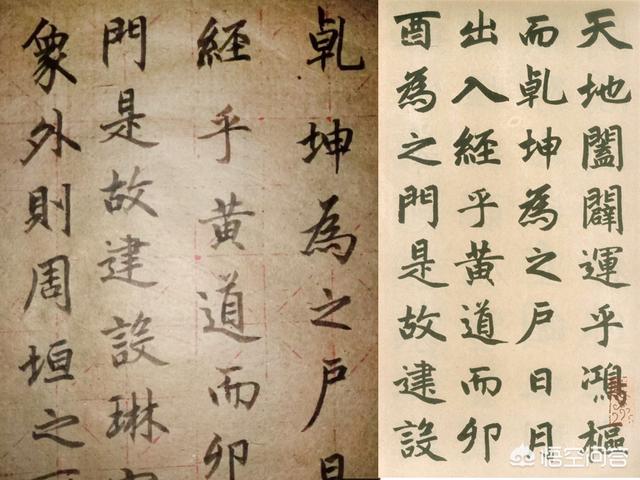 乹坤為之戶日
經乎黄道而卯
門是故建設琳
象外則周垣之
天地闔闢運乎鴻樞
而乹坤為之戶日月
出入經乎黄道而卯
酉為之門是故建設
悟空问答